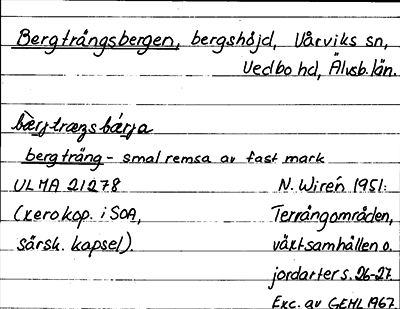 Bergtrångsbergen, bergshöjd, Vårviks sn,
Vedbo hd, Älvsb. län.
bærjtræŋsbárja
bergträng - smal remsa av fast mark
ULMA 21278 N. Wirén 1951:
(xerokop. i SOA, Terrängområden,
särsk. kapsel). växtsamhällen o.
jordarter s. 26-27.
Exc. av GEHL 1967.